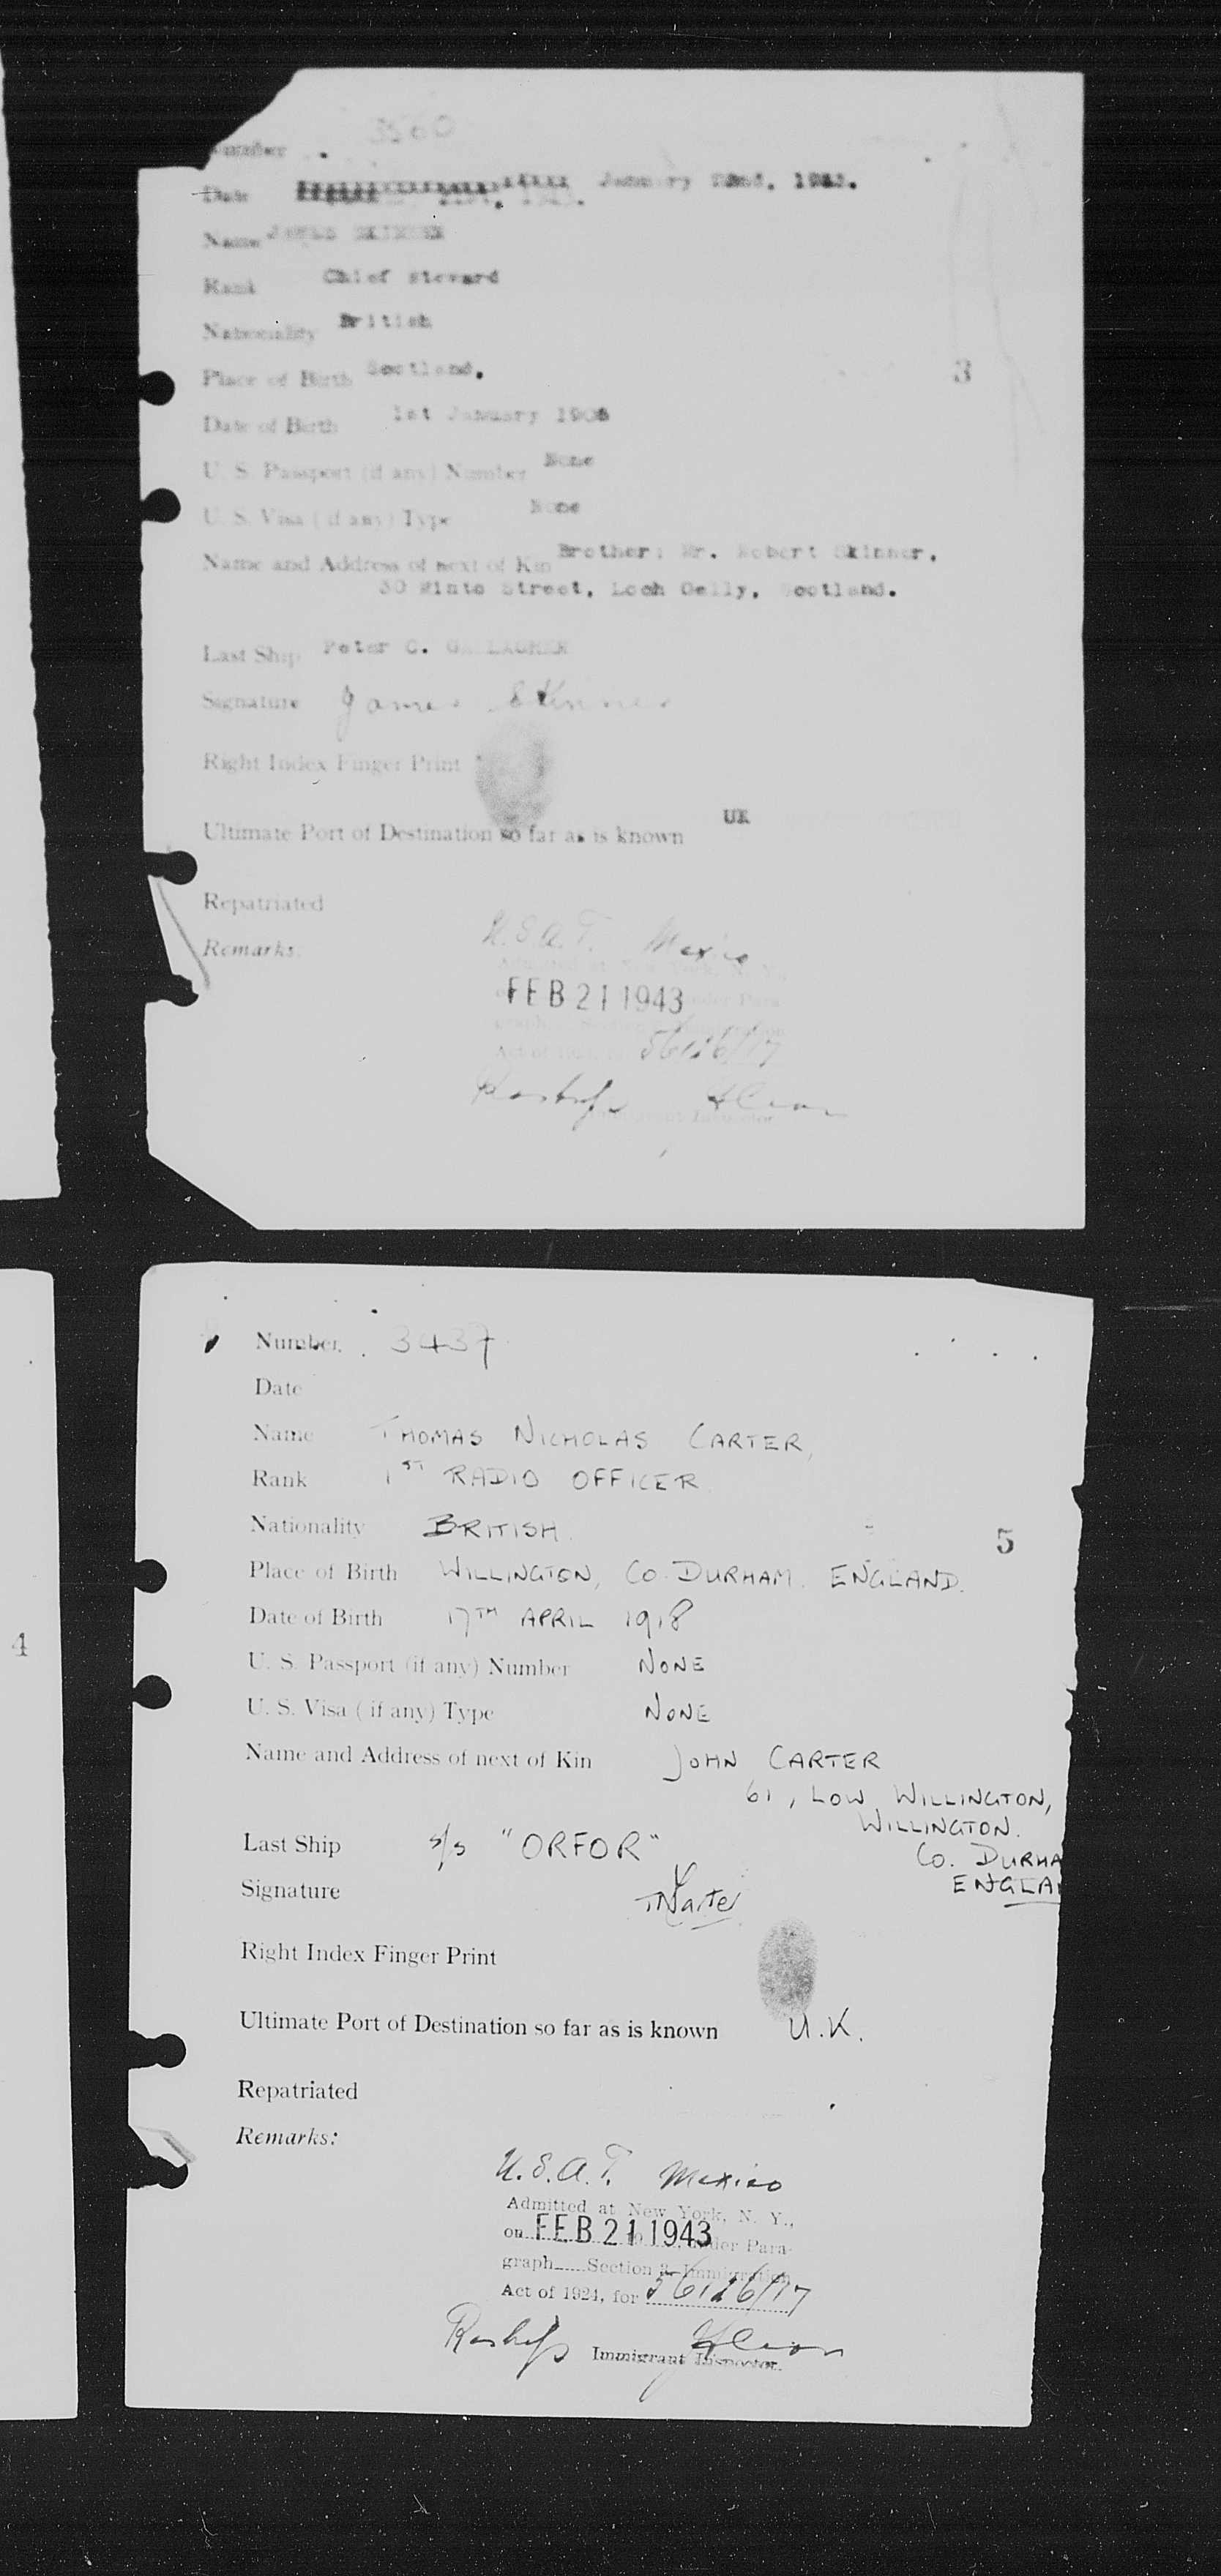 Number 3560
Date January 22nd, 1943.
Name JAMES SKINNER
Rank Chief steward
Nationality British
3
Place of Birth Scotland.
Date of Birth 1st January 1906
U. S. Passport (if any) Number None
U. S. Visa ( if any) Type None
Name and Address of next of Kin Brother: Mr. Robert Skinner.
30 Minto Street, Loch Gelly, Scotland.
Last Ship Peter C. GALLAGHER
Signature James Skinner
Right Index Finger Print
Ultimate Port of Destination so far as is known UK
Repatriated
Remarks:
U.S.A.T. Mexico
Admitted at New York, N. Y.,
on FEB 21 1943 under Para-
graph Section 3 Immigration
Act of 1924, for 56126/17
Immigrant Inspector
Number 3437
Date
Name THOMAS NICHOLAS CARTER,
Rank 1ST RADIO OFFICER.
Nationality BRITISH.
5
Place of Birth WILLINGTON, CO. DURHAM. ENGLAND.
Date of Birth 17TH APRIL 1918
4
U. S. Passport (if any) Number NONE
U. S. Visa ( if any) Type NONE
Name and Address of next of Kin JOHN CARTER
61, LOW WILLINGTON,
WILLINGTON.
Last Ship s/s "ORFOR"
CO. DURHA
ENGLA
Signature TNCarter
Right Index Finger Print
Ultimate Port of Destination so far as is known U.K.
Repatriated
Remarks:
U.S.A.T. Mexico
Admitted at New York, N. Y.,
on FEB 21 1943 under Para-
graph Section 3 Immigration
Act of 1924, for 56126/17
Immigrant Inspector.